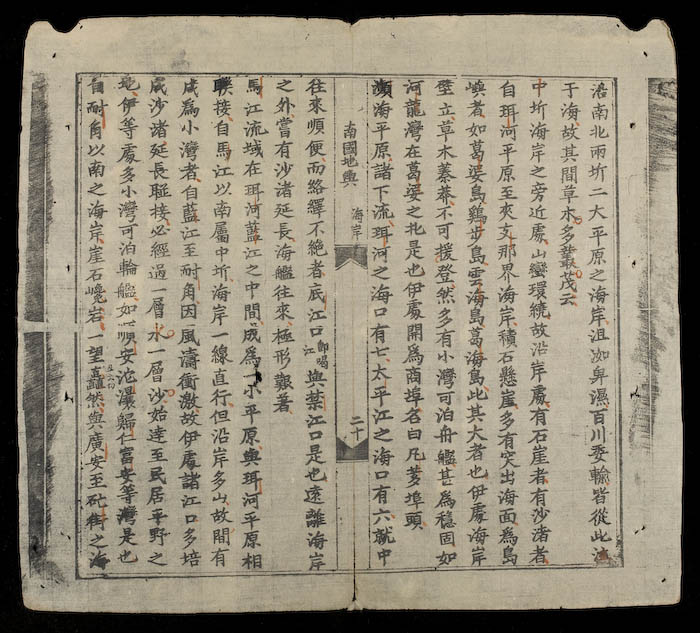 沿南北兩圻二大平原之海岸沮洳卑濕百川委輸皆從此注
于海故其間草木多叢茂云
中圻海岸之旁近處山巒環繞故沿岸處有石崖者有沙渚者
自珥河平原至夾支那界海岸積石懸崖多有突出海面為島
嶼者如葛婆島鷄步島雲海島葛海島此其大者也伊處海岸
壁立草木蓁莽不可援登然多有小灣可泊舟艦甚為穩固如
河龍灣在葛婆之北是也伊處開為商埠名曰凡𦰟埠頭
瀕海平原諸下流珥河之海口有七太平江之海口有六就中
南國地輿 海岸 二十
往來順便而絡繹不絕者底江口即喝江與禁江口是也遠離海岸
之外嘗有沙渚延長海艦往來極形艱著
馬江流域在珥河藍江之中間成為一小平原與珥河平原相
聯接自馬江以南屬中圻海岸一線直行但沿岸多山故間有
成為小灣者自藍江至耐角因風濤衝激故伊處諸江口多培
成沙渚延長聯接必經過一層水一層沙始達至民居平野之
地伊等處多小灣可泊輪艦如順安沱㶞歸仁富安等灣是也
自耐角以南之海岸崖石巉岩一望矗然與廣安至硭街之海